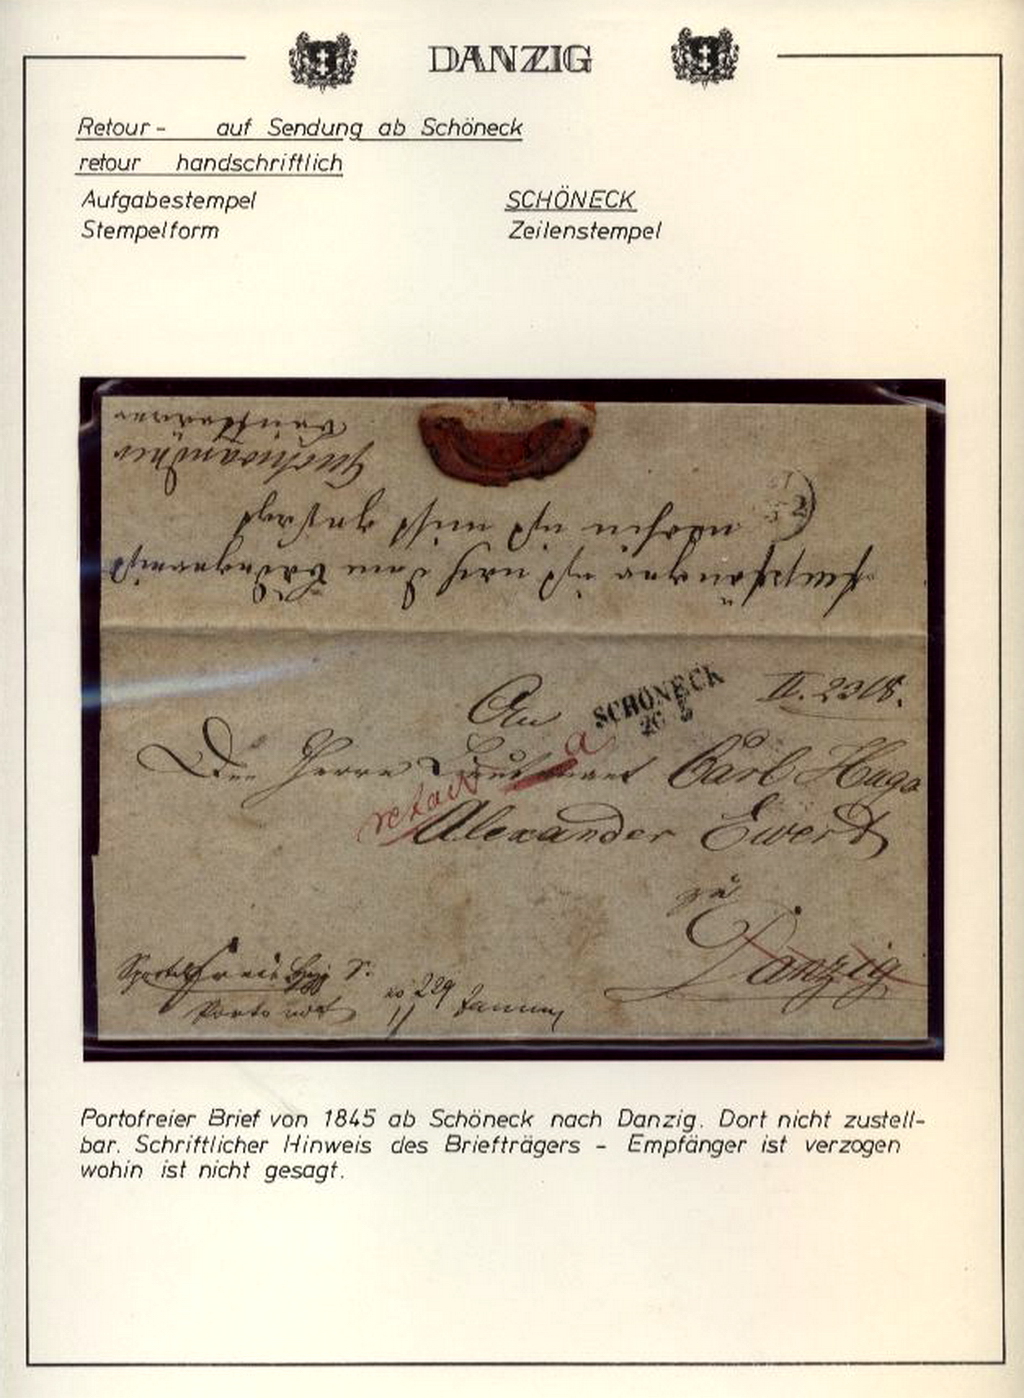 DANZIG
Retour- auf Sendung ab Schöneck
retour handschriftlich
Aufgabestempel SCHÖNECK
Stempelform Zeilenstempel
Empfänger ist nach dem
wohin ist nicht gesagt
An
SCHÖNECK
26 5
II. 2318.
Den Herrn Lieutenant Carl Hugo
retour
Alexander Ewert
zu
Danzig
Porto
229
Portofreier Brief von 1845 ab Schöneck nach Danzig. Dort nicht zustell-
bar. Schriftlicher Hinweis des Briefträgers - Empfänger ist verzogen
wohin ist nicht gesagt.